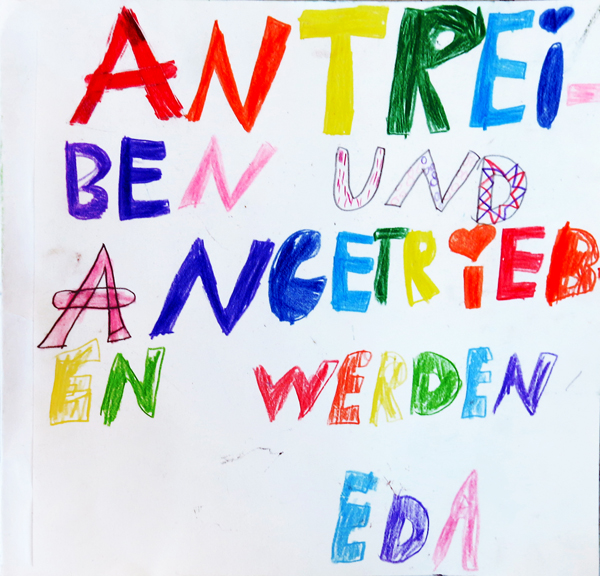 ANTREi-
BEN UND
ANGETRiEB
EN WERDEN
EDA